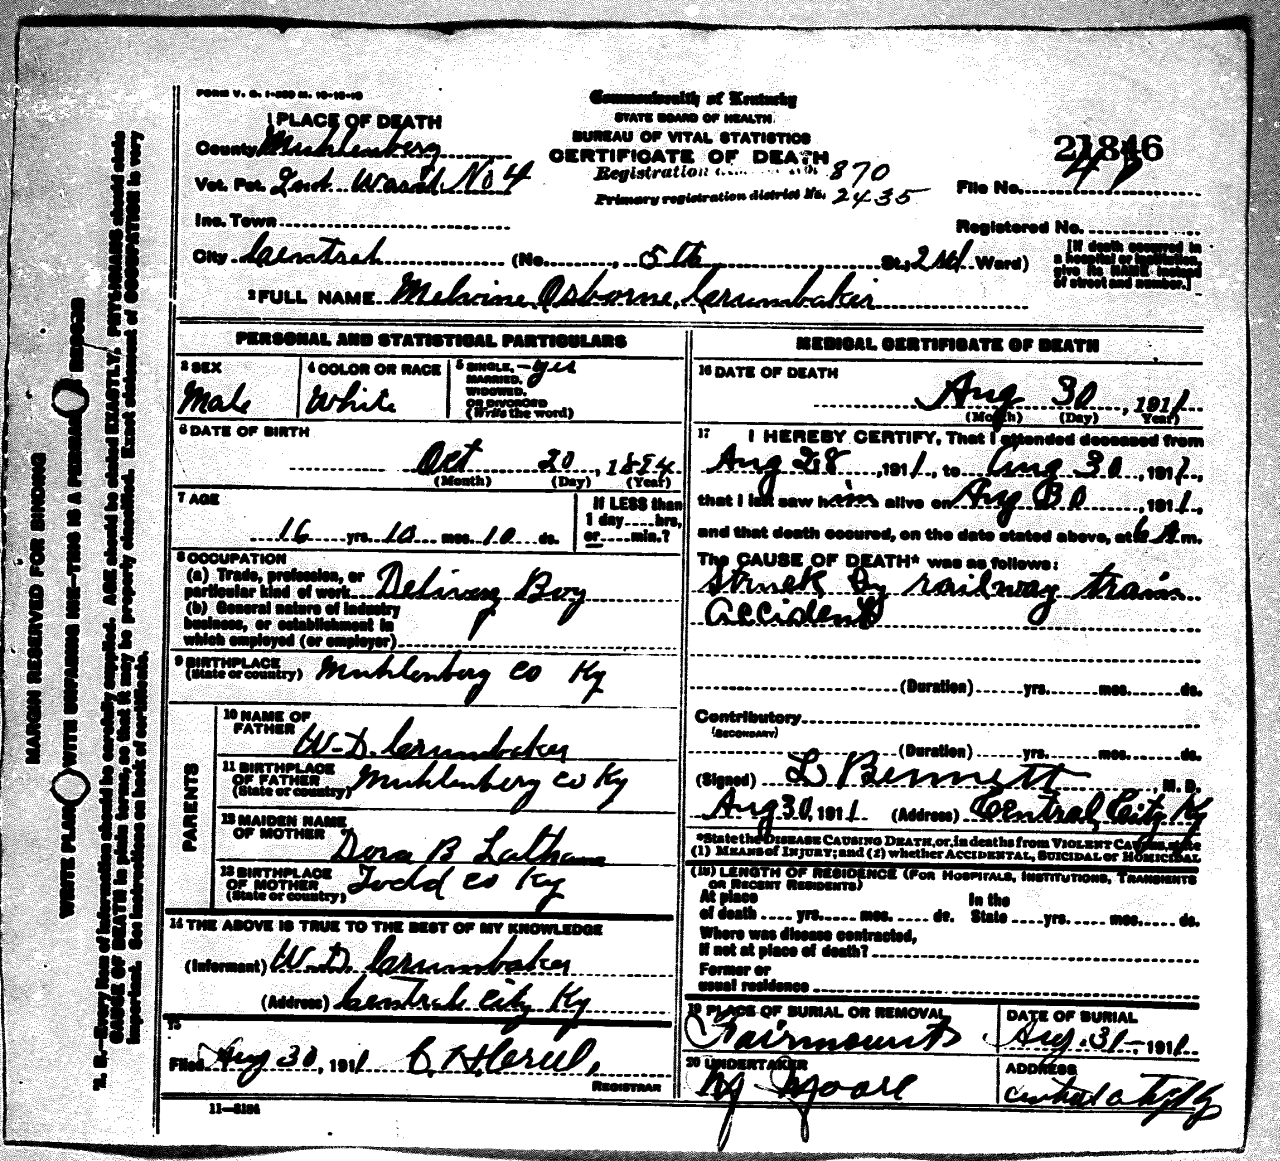 FORM V. S. 1-350 M. 10-10-10
Commonwealth of Kentucky
STATE BOARD OF HEALTH
BUREAU OF VITAL STATISTICS
CERTIFICATE OF DEATH
1 PLACE OF DEATH
County Muhlenberg
Vot. Pct. 2nd Ward No 4
Registration 870
Primary registration district No. 2435
21846
File No.
Inc. Town
Registered No.
City Central (No. , 5th St.; 2nd Ward)
[If death occurred in
a hospital or institution,
give its NAME instead
of street and number.]
2 FULL NAME Melvine Osborne Crumbaker
PERSONAL AND STATISTICAL PARTICULARS
3 SEX
Male
4 COLOR OR RACE
White
5 SINGLE, - yes
MARRIED,
WIDOWED,
OR DIVORCED
(Write the word)
6 DATE OF BIRTH
Oct 20, 1894
(Month) (Day) (Year)
7 AGE
16 yrs. 10 mos. 10 ds.
If LESS than
1 day hrs.
or min.?
8 OCCUPATION
(a) Trade, profession, or
particular kind of work Delivery Boy
(b) General nature of industry
business, or establishment in
which employed (or employer)
9 BIRTHPLACE
(State or country) Muhlenberg Co Ky
PARENTS
10 NAME OF
FATHER W. D. Crumbaker
11 BIRTHPLACE
OF FATHER
(State or country) Muhlenberg Co Ky
12 MAIDEN NAME
OF MOTHER Dora B Latham
13 BIRTHPLACE
OF MOTHER
(State or country) Todd Co Ky
14 THE ABOVE IS TRUE TO THE BEST OF MY KNOWLEDGE
(Informant) W. D. Crumbaker
(Address) Central City Ky
15
Filed Aug 30, 1911
REGISTRAR
11-5184
MEDICAL CERTIFICATE OF DEATH
16 DATE OF DEATH
Aug 30, 1911
(Month) (Day) (Year)
17 I HEREBY CERTIFY, That I attended deceased from
Aug 28, 1911, to Aug 30, 1911,
that I last saw him alive on Aug 30, 1911,
and that death occured, on the date stated above, at 6 A m.
The CAUSE OF DEATH* was as follows:
Struck by railway train
accident
(Duration) yrs. mos. ds.
Contributory
(SECONDARY)
(Duration) yrs. mos. ds.
(Signed) L Bennett, M. D.
Aug 30, 1911 (Address) Central City Ky
*State the DISEASE CAUSING DEATH, or, in deaths from VIOLENT CAUSES, state
(1) MEANS of INJURY; and (2) whether ACCIDENTAL, SUICIDAL or HOMICIDAL
(18) LENGTH OF RESIDENCE (FOR HOSPITALS, INSTITUTIONS, TRANSIENTS
OR RECENT RESIDENTS)
At place
of death yrs. mos. ds.
In the
State yrs. mos. ds.
Where was disease contracted,
if not at place of death?
Former or
usual residence
19 PLACE OF BURIAL OR REMOVAL
Fairmount
DATE OF BURIAL
Aug. 31-, 1911
20 UNDERTAKER
Moore
ADDRESS
Central City Ky
MARGIN RESERVED FOR BINDING
WRITE PLAINLY WITH UNFADING INK—THIS IS A PERMANENT RECORD
N. B.—Every item of information should be carefully supplied. AGE should be stated EXACTLY. PHYSICIANS should state
CAUSE OF DEATH in plain terms, so that it may be properly classified. Exact statement of OCCUPATION is very
important. See instructions on back of certificate.